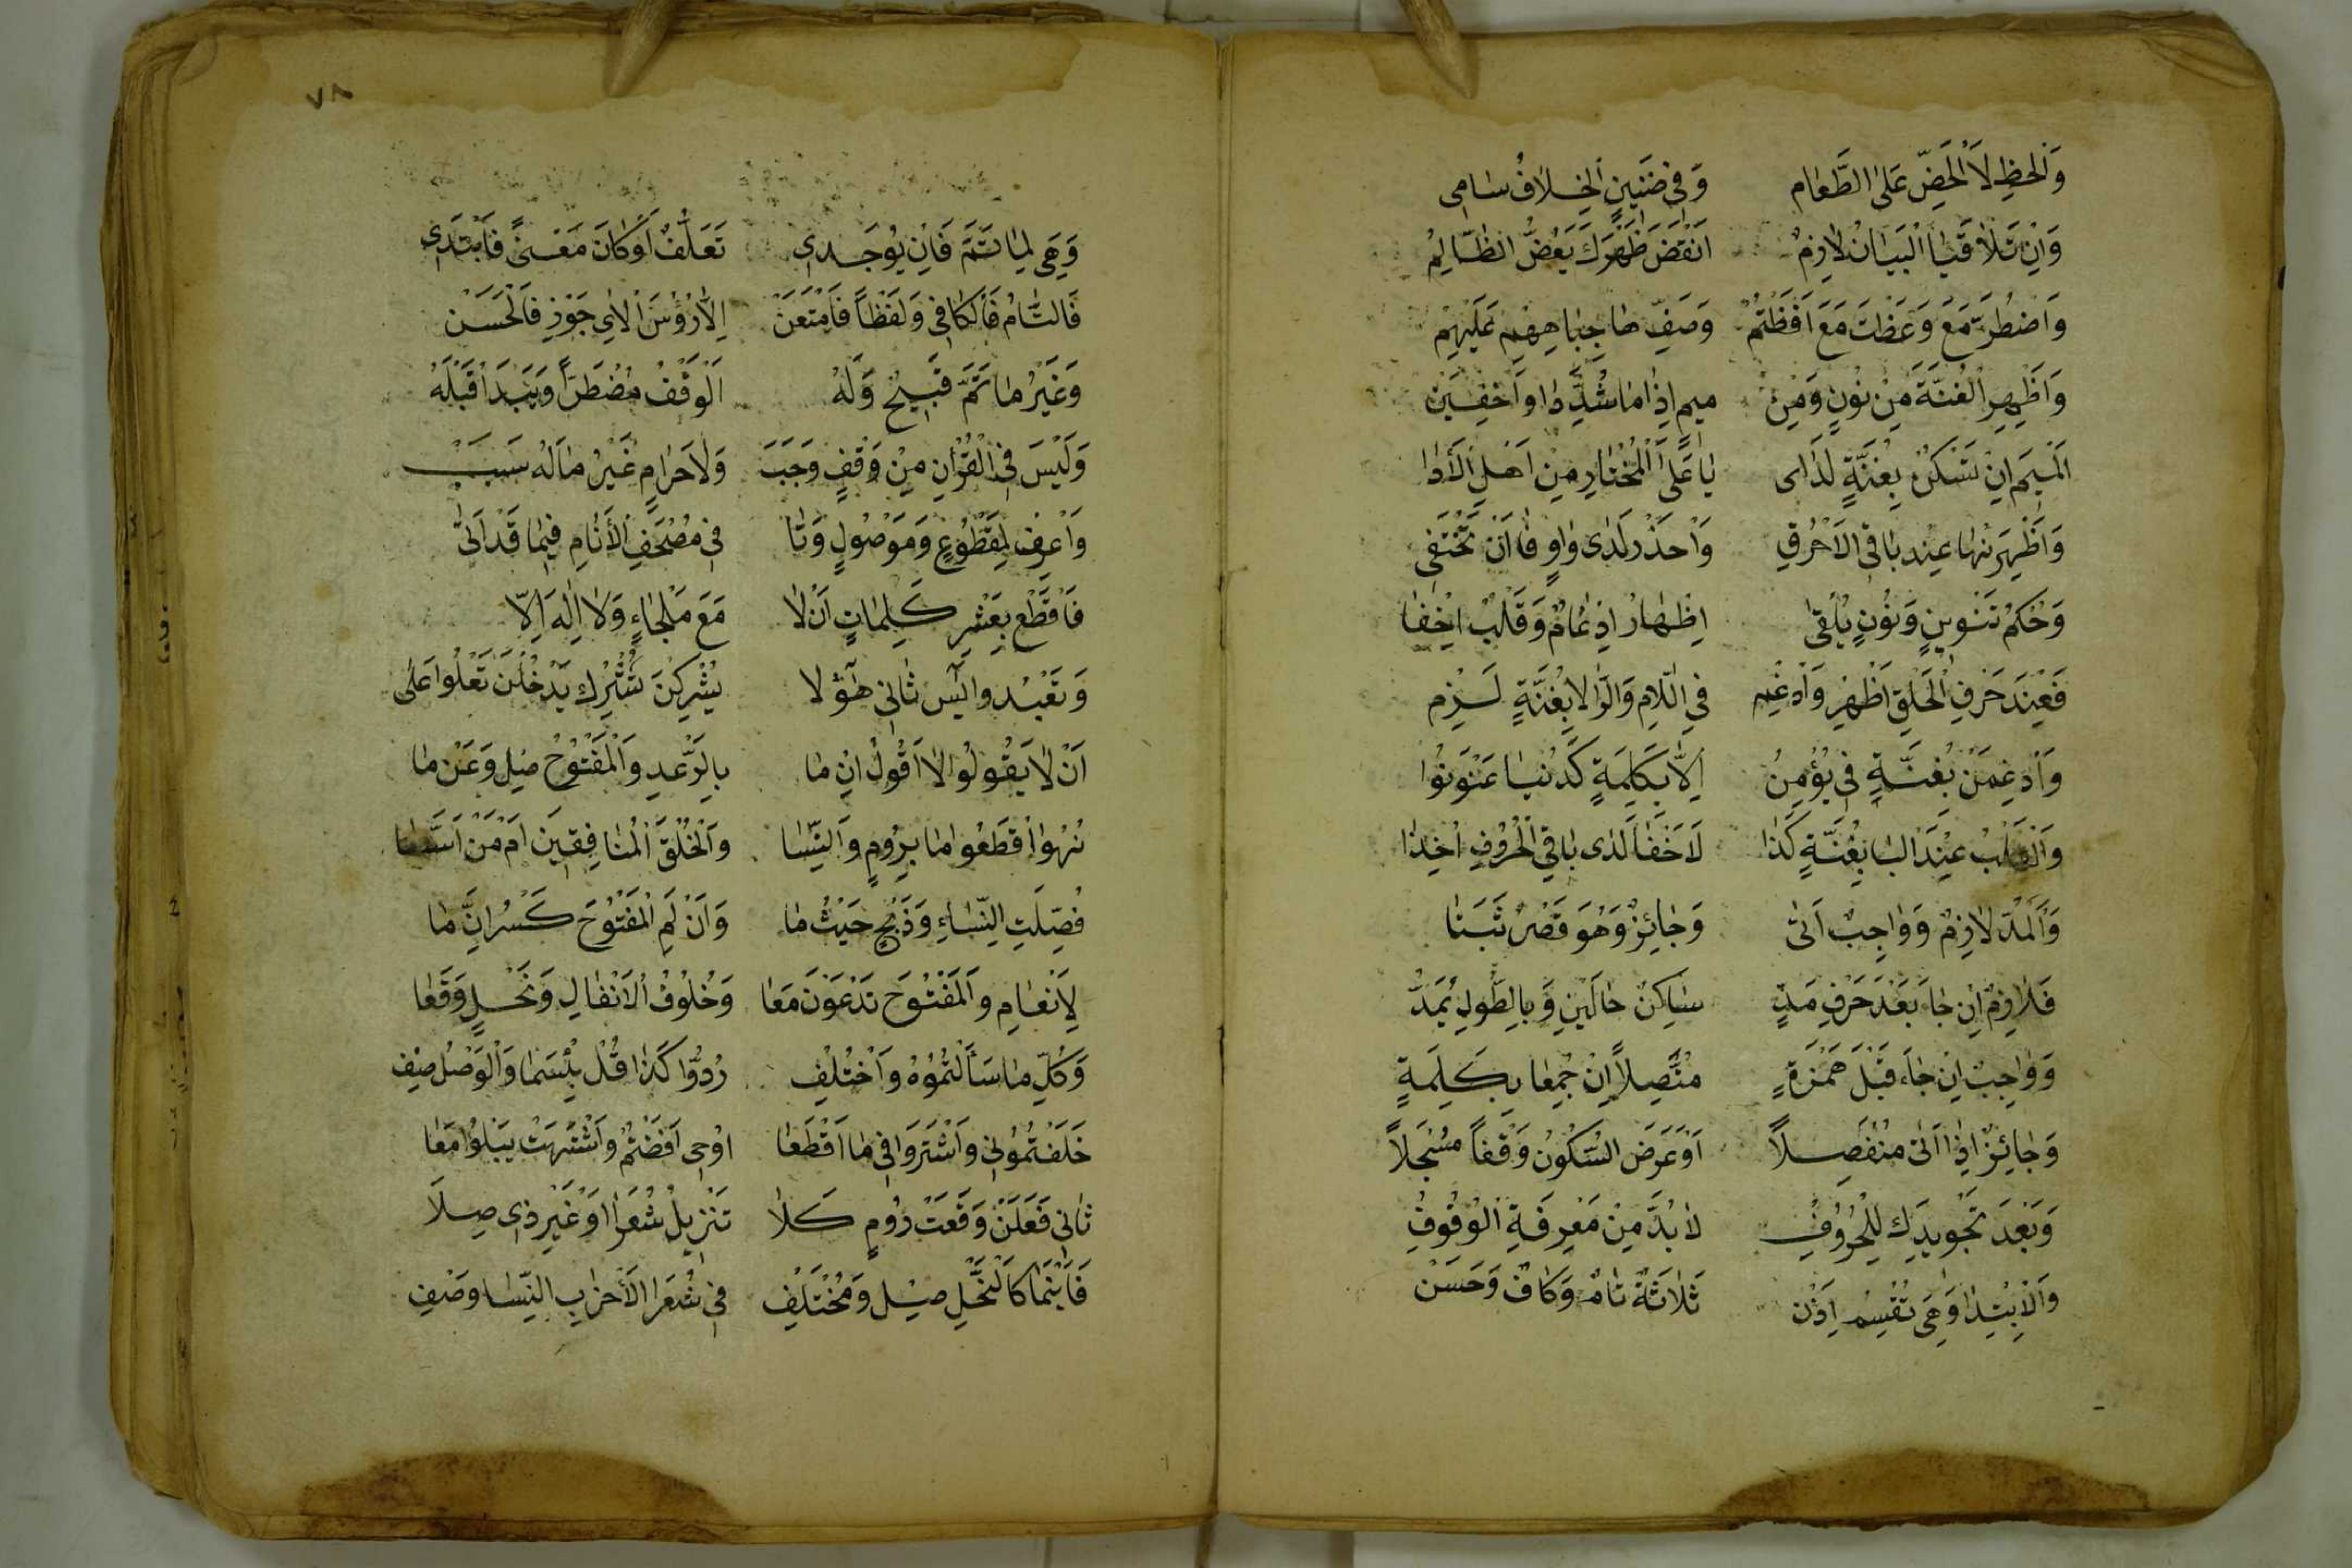 وَالحَظِ لَا الْحَضِّ عَلَى الطَّعَامِ وَفِي ضَنِينٍ الْخِلَافُ سَامِى
وَاِنْ تَلَاقَيَا الْبَيَانُ لَازِمٌ اَنْقَضَ ظَهْرَكَ يَعَضُّ الظَّالِمُ
وَاضْطُرَّ مَعْ وَعَظْتَ مَعَ اَفَظْتُمُ وَصَفِّ هَا جِبَاهِهِمْ عَلَيْهِمِ
وَاَظْهِرِ الْغُنَّةَ مِنْ نُونٍ وَمِنْ مِيمٍ اِذَا مَا شُدِّدَا وَاَخْفِيَنْ
الْمِيمَ اِنْ تَسْكُنْ بِغُنَّةٍ لَدَاى بَا عَلَى الْمُخْتَارِ مِنْ اَهْلِ الْأَدَا
وَاَظْهِرَنْهَا عِنْدَ بَاقِى الْاَحْرُفِ وَاحْذَرْ لَدَى وَاوٍ فَا اَنْ تَخْتَفَى
وَحُكْمُ تَنْوِينٍ وَنُونٍ يُلْقَى اِظْهَارُ اِدْغَامٌ وَقَلْبٌ اِخْفَا
فَعِنْدَ حَرْفِ الْحَلْقِ اَظْهِرْ وَادْغِمْ فِي اللَّامِ وَالرَّا لَا بِغُنَّةٍ لَزِمِ
وَاَدْغِمَنْ بِغُنَّةٍ فِى يُؤْمِنُ اِلَّا بِكَلِمَةٍ كَدُنْيَا عَنْوَنُوا
وَالْقَلْبُ عِنْدَ الْبَا بِغُنَّةٍ كَذَا لَاخْفَا لَدَى بَاقِى الْحُرُوفِ اُخِذَا
وَالْمَدُّ لَازِمٌ وَوَاجِبٌ اَتَى وَجَائِزٌ وَهُوَ قَصْرٌ ثَبَتَا
فَلَازِمٌ اِنْ جَاءَ بَعْدَ حَرْفِ مَدٍّ سَاكِنُ حَالَيْنِ وَبِالطُّولِ يُمَدُّ
وَوَاجِبٌ اِنْ جَاءَ قَبْلَ هَمْزَةٍ مُتَّصِلًا اِنْ جُمِعَا بِكَلِمَةٍ
وَجَائِزٌ اِذَا اَتَى مُنْفَصِلًا اَوْ عَرَضَ السُّكُونُ وَقْفًا مُسْجَلًا
وَبَعْدَ تَجْوِيدِكَ لِلْحُرُوفِ لَا بُدَّ مِنْ مَعْرِفَةِ الْوُقُوفِ
وَالْاِبْتِدَا وَهِىَ تُقْسَمُ اِذَنْ ثَلَاثَةٌ تَامٌ وَكَافٌ وَحَسَنْ
٧٨
وَهِىَ لِمَا تَمَّ فَاِنْ يُوجَدِى تَعَلُّقٌ اَوْ كَانَ مَعْنًى فَابْتَدِى
فَالتَّامُ فَالْكَافِى وَلَفْظًا فَامْنَعَنْ اِلَّا رُؤُسَ الْاٰىِ جَوِّزْ فَالْحَسَنْ
وَغَيْرُ مَا تَمَّ قَبِيحٌ وَلَهُ اَلْوَقْفُ مُضْطَرًّا وَيُبْدَا قَبْلَهُ
وَلَيْسَ فِى الْقُرْاٰنِ مِنْ وَقْفٍ وَجَبَ وَلَا حَرَامٍ غَيْرُ مَا لَهُ سَبَبْ
وَاعْرِفْ لِمَقْطُوعٍ وَمَوْصُولٍ وَتَا فِى مُصْحَفِ الْأَنَامِ فِيمَا قَدْ اَتَى
فَاقْطَعْ بِعَشْرِ كَلِمَاتٍ اَنْ لَا مَعَ مَلْجَاءٍ وَلَا اِلٰهَ اِلَّا
وَتَعْبُدُوا يٰسَ ثَانِى هُودَ لَا يُشْرِكْنَ تُشْرِكْ يَدْخُلَنْ تَعْلُوا عَلَى
اَنْ لَا يَقُولُوا لَا اَقُولُ اِنْ مَا بِالرَّعْدِ وَالْمَفْتُوحُ صِلْ وَعَنْ مَا
نُهُوا اقْطَعُوا مَا بِرُومٍ وَالنِّسَا وَالْخُلْفُ الْمُنَافِقِينَ اَمْ مَنْ اَسَّسَا
فُصِّلَتِ النِّسَاءِ وَذِبْحٍ حَيْثُ مَا وَاَنْ لَمِ الْمَفْتُوحَ كَسْرُ اِنَّ مَا
لِاَنْعَامِ وَالْمَفْتُوحَ تَدْعُونَ مَعَا وَخُلُوفُ الْاَنْفَالِ وَنَحْلٍ وَقَعَا
وَكُلِّ مَا سَاَلْتُمُوهُ وَاخْتُلِفْ رُدُّوا كَذَا قُلْ بِئْسَمَا وَالْوَصْلُ صِفْ
خَلَفْتُمُونِى وَاشْتَرَوْا فِى مَا اقْطَعَا اُوحِى اَفَضْتُمْ وَاشْتَهَتْ يَبْلُوا مَعَا
ثَانِى فَعَلْنَ وَقَعَتْ رُومٍ كَلَا تَنْزِيلُ شُعَرَا اَوْ غَيْرِ ذِى صِلَا
فَاَيْنَمَا كَالنَّحْلِ صِلْ وَمُخْتَلِفْ فِى شُعَرَا الْأَحْزَابِ النِّسَا وَصْفِ